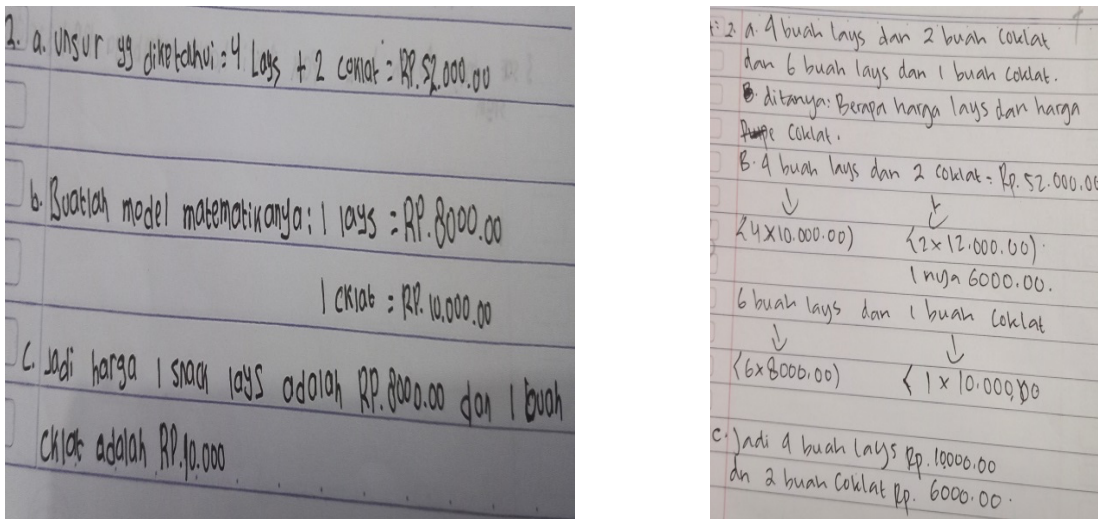 2. a. Unsur yg diketahui = 4 Lays + 2 Coklat = RP. 52.000.00
b. Buatlah model matematikanya : 1 lays = RP. 8000.00
1 cklat = RP. 10.000.00
C. Jadi harga 1 snack lays adalah RP. 8000.00 dan 1 buah
cklat adalah RP. 10.000
2 a. 4 buah lays dan 2 buah coklat
dan 6 buah lays dan 1 buah coklat.
ditanya : Berapa harga lays dan harga
Coklat.
B. 4 buah lays dan 2 coklat = Rp. 52.000.00
(4 x 10.000.00) (2 x 12.000.00)
1 nya 6000.00.
6 buah lays dan 1 buah coklat
(6 x 8000.00) ( 1 x 10.000,00
C. Jadi 4 buah lays Rp. 10000.00
dn 2 buah Coklat Rp. 6000.00.